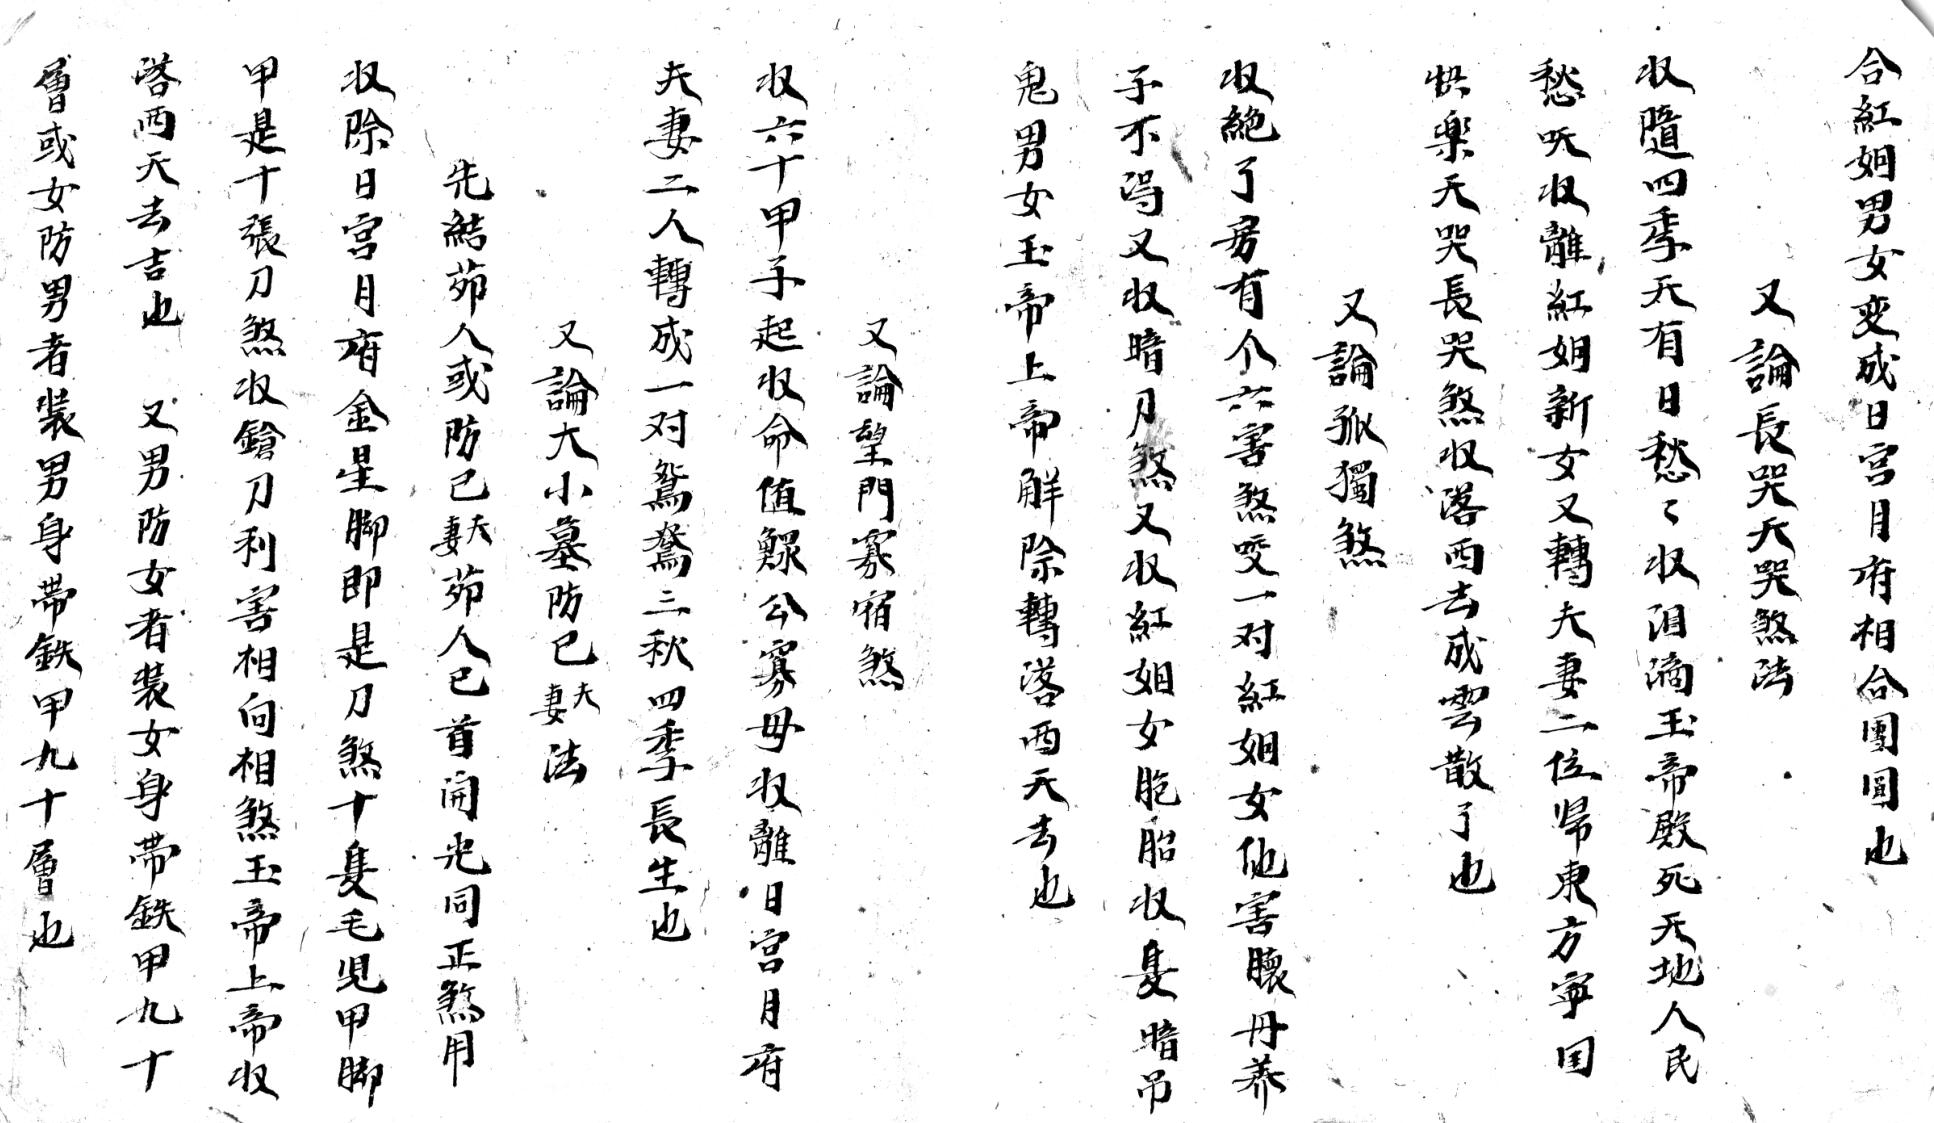 合紅姻男女变成日宫月府相合團圓也
又論長哭天哭煞法
収隨四季天有日愁〻収泪滴玉帝殿死天地人民
愁呎収離紅姻新女又轉夫妻二位帰東方寧囯
快楽天哭長哭煞収落西去成雲散了也
又論孤獨煞
収絶了房有个六害煞咬一对紅姻女他害懷丹养
子不得又収暗刀煞又収紅姻女胞胎収隻暗吊
鬼男女玉帝上帝解除轉落西天去也
又論望門寡宿煞
収六十甲子起収命值鰥公寡母収離日宫月府
夫妻二人轉成一对鴛鴦三秋四季長生也
又論大小墓防巳夫妻法
先結茆人或防己夫妻茆人已首開光同正煞用
収除日宫月府金星脚即是刀煞十隻毛児甲脚
甲是十張刀煞収鎗刀利害相向相煞玉帝上帝収
落西天去吉也 又男防女者装女身帶鉄甲九十
層或女防男者装男身帶鉄甲九十層也